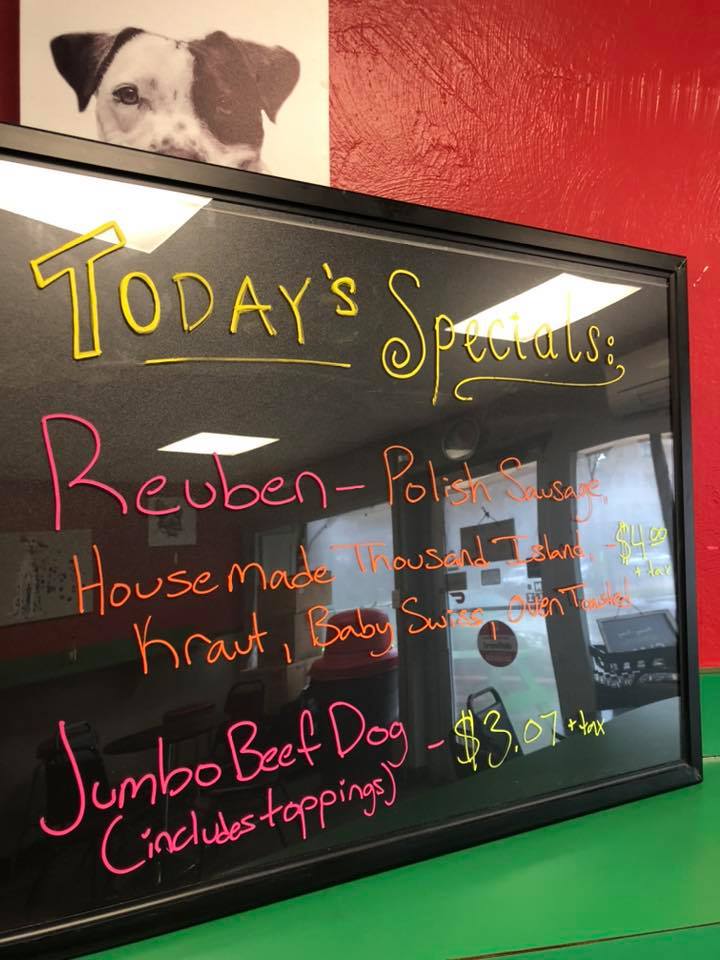 TODAY'S Specials:
Reuben - Polish Sausage,
House made Thousand Island, - $4.00
+ tax
Kraut, Baby Swiss, Oven Toasted
Jumbo Beef Dog - $3.07 + tax
(includes toppings)